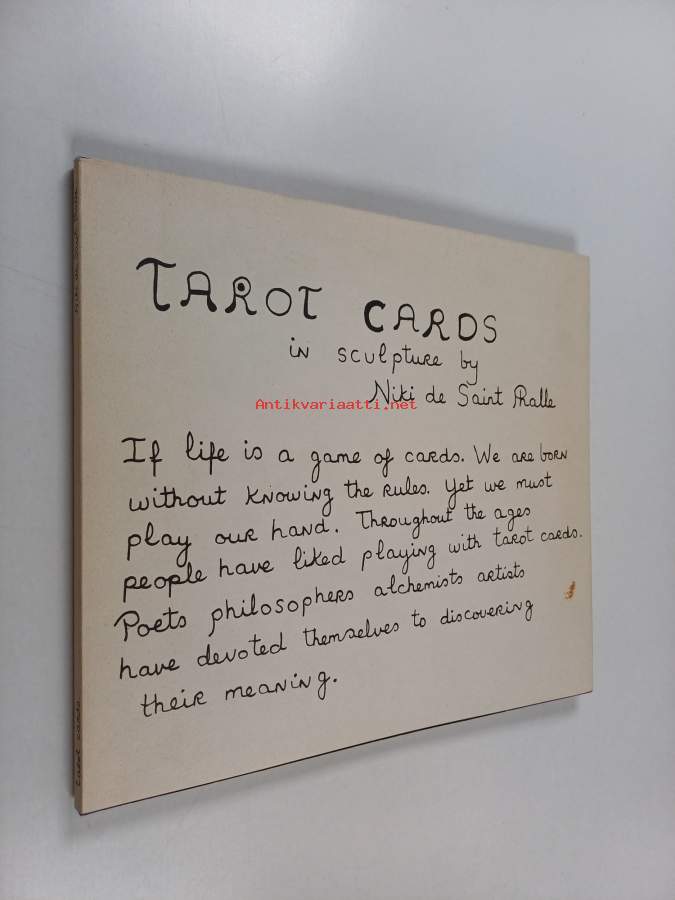 TAROT CARDS
in sculpture by
Niki de Saint Phalle
Antikvariaatti.net
If life is a game of cards. We are born
without knowing the rules. Yet we must
play our hand. Throughout the ages
people have liked playing with tarot cards.
Poets philosophers alchemists artists
have devoted themselves to discovering
their meaning.
Niki de Saint Phalle
Tarot cards